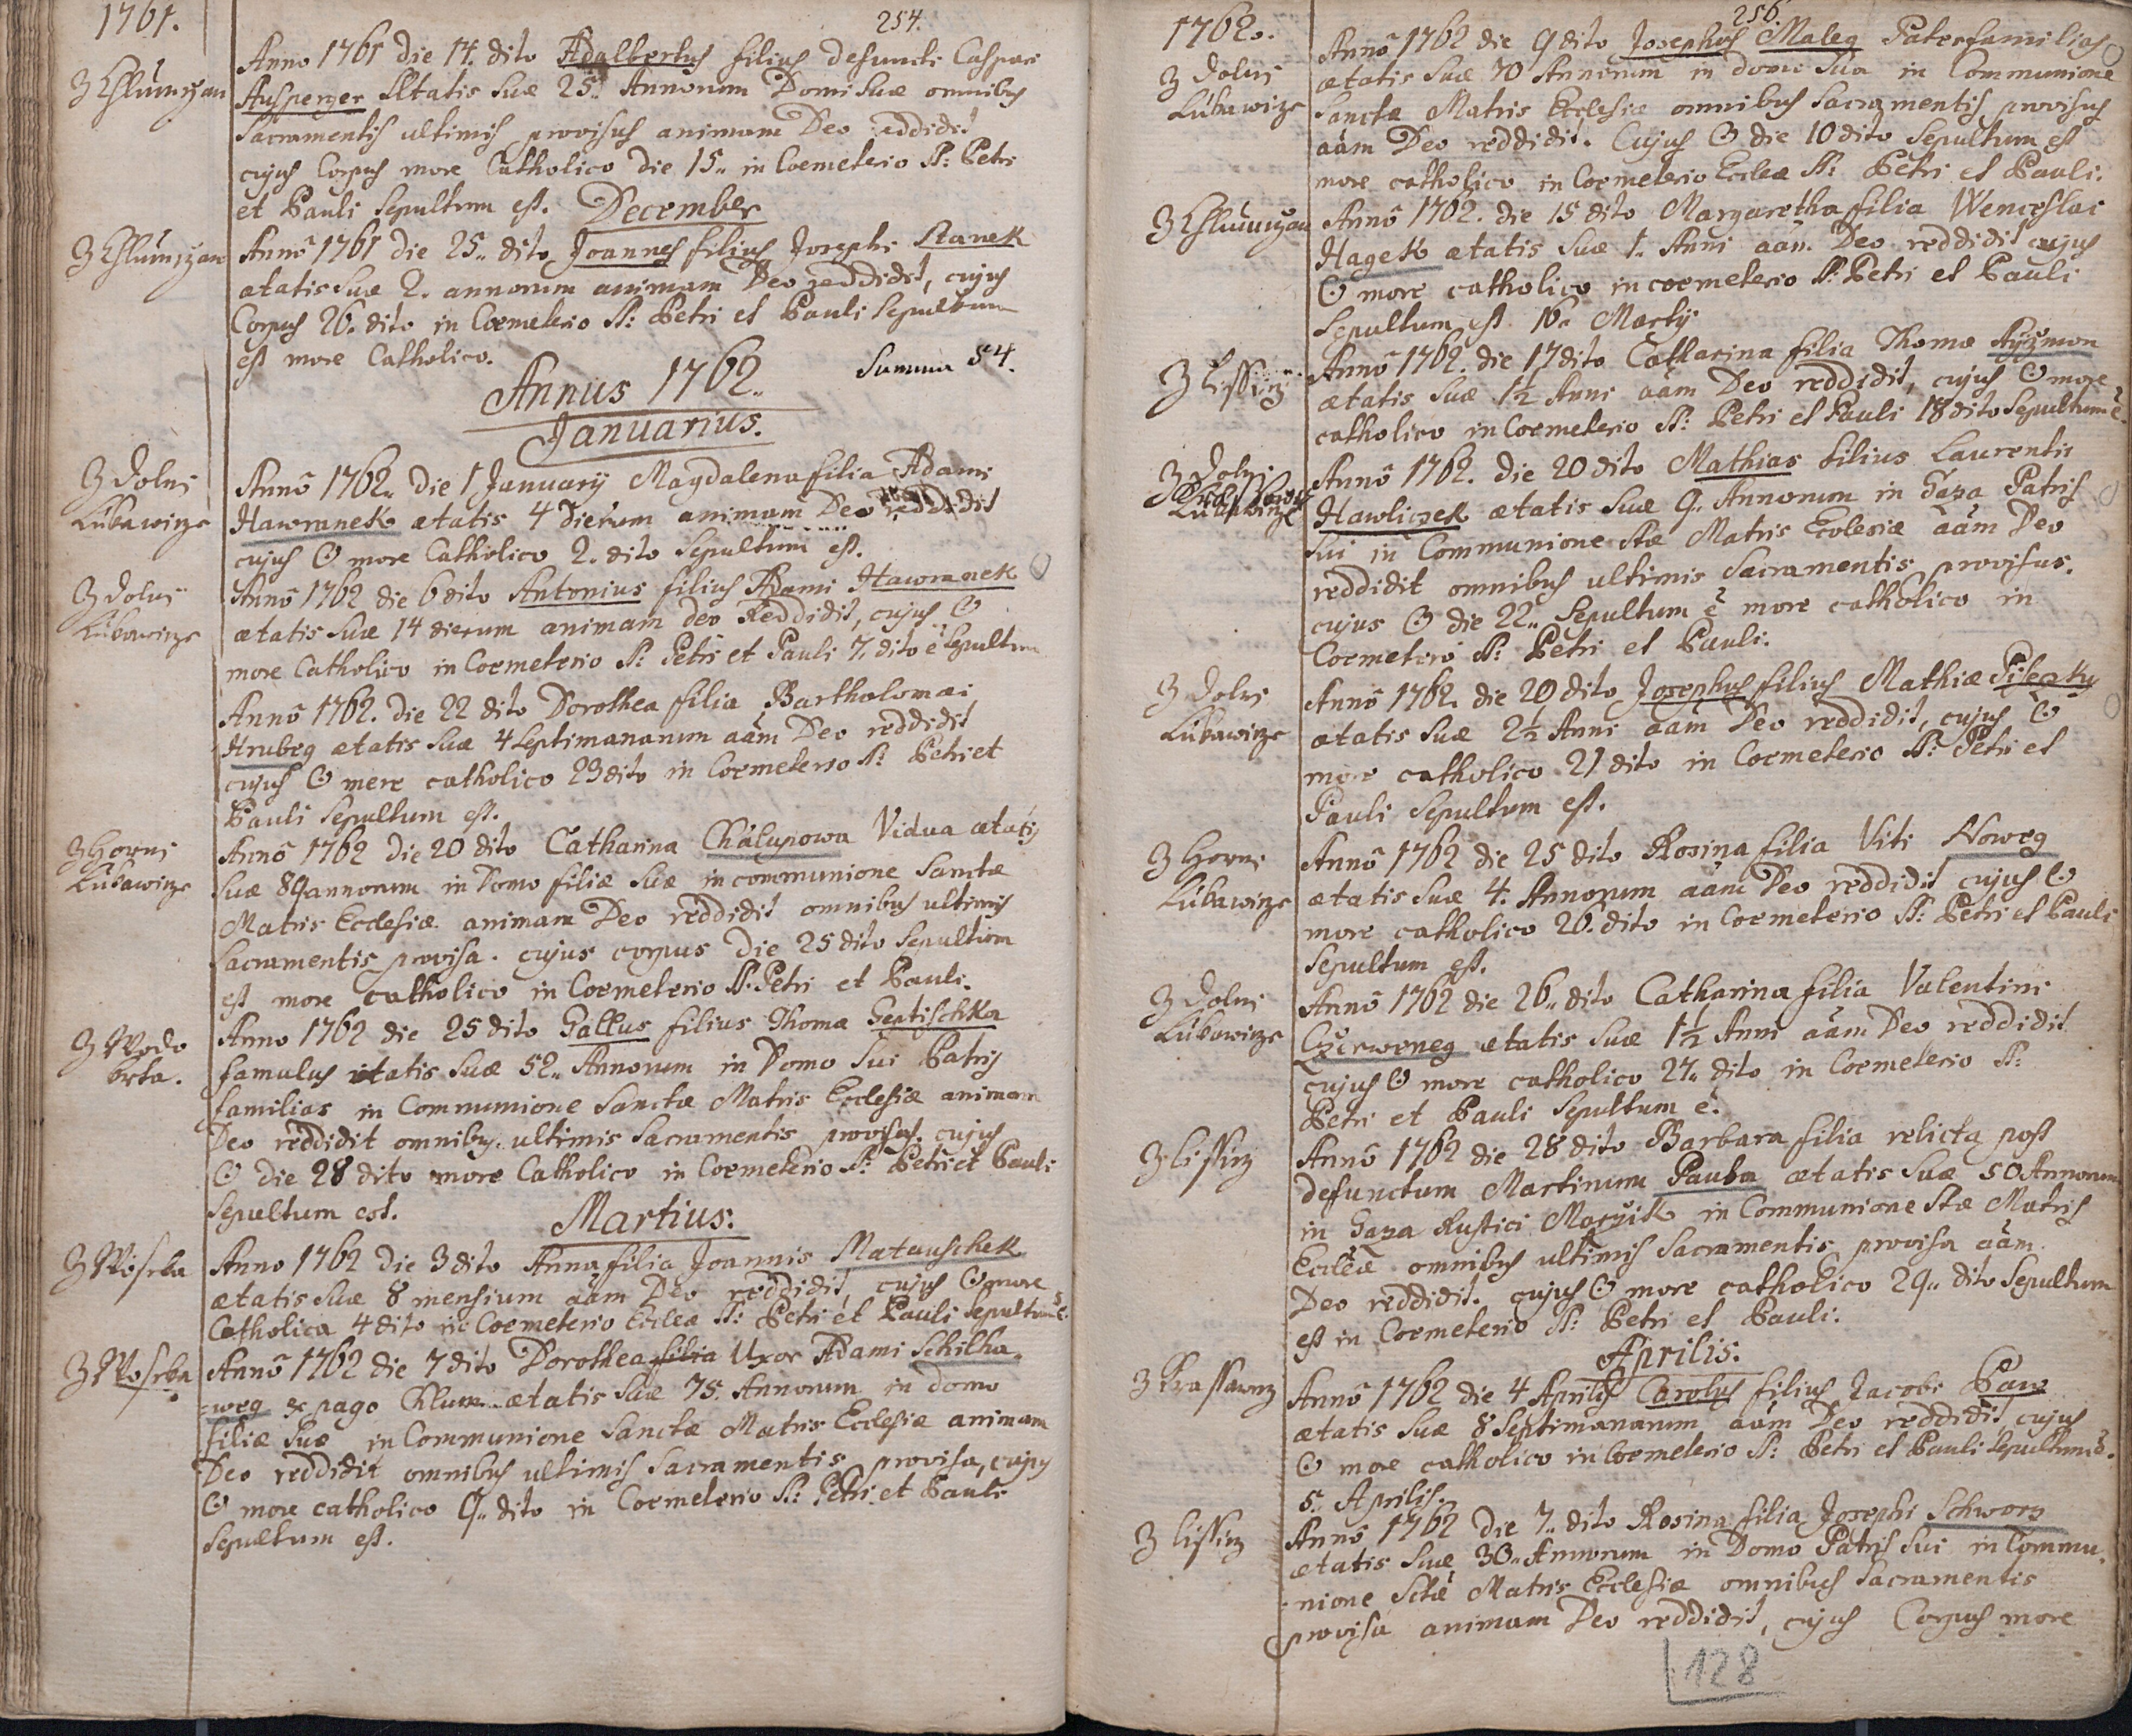 1761.
254.
Z Chlumczan
Anno 1761 die 14. dito Adalbertus filius defuncti Caspari
Ausperger Ætatis Suæ 25. Annorum Domi Suæ omnibus
Sacramentis ultimis provisus animam Deo reddidit
cujus Corpus more Catholico die 15,, in Coemeterio SS: Petri
et Pauli Sepultum est. December
Z Chlumczan
Annô 1761 die 25,, dito Joannes filius Josephi Stanek
ætatis Suæ 2. annorum animam Deo reddidit, cujus
Corpus 26. dito in Coemeterio SS: Petri et Pauli Sepultum
est more Catholico.
Summa 54.
Annus 1762.
Januarius.
Z Dolni
Lukawicze
Annô 1762,, die 1 January Magdalena filia Adami
Hawranek ætatis 4 dierum animam Deo reddidit
cujus ʘ more Catholico 2. dito Sepultum est.
Z Dolni
Lukawicze
Annô 1762 die 6 dito Antonius filius Adami Hawranek
ætatis Suæ 14 dierum animam deo Reddidit, cujus ʘ
more Catholico in Coemeterio SS: Petri et Pauli 7. dito ê Sepultum
Annô 1762. die 22 dito Dorothea filia Bartholomæi
Hrubeg ætatis Suæ 4 Septimanarum aâm Deo reddidit
cujus ʘ more catholico 23 dito in Coemeterio SS: Petri et
Pauli Sepultum est.
Z Horni
Lukawicze
Annô 1762 die 20 dito Catharina Chalupowa Vidua ætatis
Suæ 89 annorum in Domo filiæ Suæ in communione Sanctæ
Matris Ecclesiæ animam Deo reddidit omnibus ultimis
Sacramentis provisa. cujus corpus die 25 dito Sepultum
est more catholico in Coemeterio SS. Petri et Pauli.
Z Wodo
krta.
Anno 1762 die 25 dito Gallus filius Thomæ Gertischka
famulus ætatis Suæ 52,, Annorum in Domo Sui Patris
familias in Communione Sanctæ Matris Ecclesiæ animam
Deo reddidit omnibus ultimis Sacramentis provisus. cujus
ʘ die 28 dito more Catholico in Coemeterio SS: Petri et Pauli
Sepultum est.
Martius.
Z Wosrka
Anno 1762 die 3 dito Anna filia Joannis Matauschek
ætatis Suæ 8 mensium aâm Deo reddidit, cujus ʘ more
Catholico 4 dito in Coemeterio Eccleæ SS: Petri et Pauli Sepultum ê.
Z Wosrka
Annô 1762 die 7 dito Dorothea filia Uxor Adami Schilha
=weg ex pago Chlum ætatis Suæ 75. Annorum in domo
filiæ Suæ in Communione Sanctæ Matris Ecclesiæ animam
Deo reddidit omnibus ultimis Sacramentis provisa, cujus
ʘ more catholico 9,, dito in Coemeterio SS: Petri et Pauli
Sepultum est.
1762.
256.
Z Dolni
Lukawicze
Annô 1762 die 9 dito Josephus Maleg Paterfamilias
ætatis Suæ 70 Annorum in domo Sua in Communione
Sanctæ Matris Ecclesiæ omnibus Sacramentis provisus
aâm Deo reddidit. Cujus ʘ die 10 dito Sepultum est
more catholico in Coemeterio Eccleæ SS: Petri et Pauli.
Z Chlumczan
Annô 1762. die 15 dito Margaretha filia Wenceslai
Hagek ætatis Suæ 1. Anni aâm Deo reddidit cujus
ʘ more catholico in coemeterio SS: Petri et Pauli
Sepultum est 16,, Martij
Z Lissicz
Annô 1762. die 17 dito Catharina filia Thomæ Ayzmon
ætatis Suæ 1½ Anni aâm Deo reddidit, cujus ʘ more
catholico in Coemeterio SS: Petri et Pauli 18 dito Sepultum ê.
Z Dolni
Lukawicze
Annô 1762. die 20 dito Mathias filius Laurentii
Hawliczek ætatis Suæ 9. Annorum in Gaza Patris
Sui in Communione Stæ Matris Ecclesiæ aâm Deo
reddidit omnibus ultimis Sacramentis provisus.
cujus ʘ die 22,, Sepultum ê more catholico in
Coemeterio SS: Petri et Pauli.
Z Dolni
Lukawicze
Annô 1762. die 20 dito Josephus filius Mathiæ
ætatis Suæ 2½ Anni aâm Deo reddidit, cujus ʘ
more catholico 21 dito in Coemeterio SS: Petri et
Pauli Sepultum est.
Z Horni
Lukawicze
Annô 1762 die 25 dito Rosina filia Viti Noweg
ætatis Suæ 4. Annorum aâm Deo reddidit cujus ʘ
more catholico 26. dito in Coemeterio SS: Petri et Pauli
Sepultum est.
Z Dolni
Lukawicze
Annô 1762 die 26,, dito Catharina filia Valentini
Czerweneg ætatis Suæ 1½ Anni aâm Deo reddidit
cujus ʘ more catholico 27,, dito in Coemeterio SS:
Petri et Pauli Sepultum ê.
Z Lissicz
Annô 1762 die 28 dito Barbara filia relicta post
defunctum Martinum Pauba ætatis Suæ 50 Annorum
in Gaza Rustici in Communione Stæ Matris
Eccleæ omnibus ultimis Sacramentis provisa aâm
Deo reddidit. cujus ʘ more catholico 29,, dito Sepultum
est in Coemeterio SS: Petri et Pauli.
Aprilis.
Z Krassawcz
Annô 1762 die 4 Aprilis Carolus filius Jacobi Paw
ætatis Suæ 8 Septimanarum aâm Deo reddidit, cujus
ʘ more catholico in Coemeterio SS: Petri et Pauli Sepultum ê.
5. Aprilis.
Z Lissicz
Annô 1762 Die 7,, dito Rosina filia Josephi Schworz
ætatis Suæ 30,, Annorum in Domo Patris Sui in Commu
nione Sctæ Matris Ecclesiæ omnibus Sacramentis
provisa animam Deo reddidit, cujus Corpus more
128